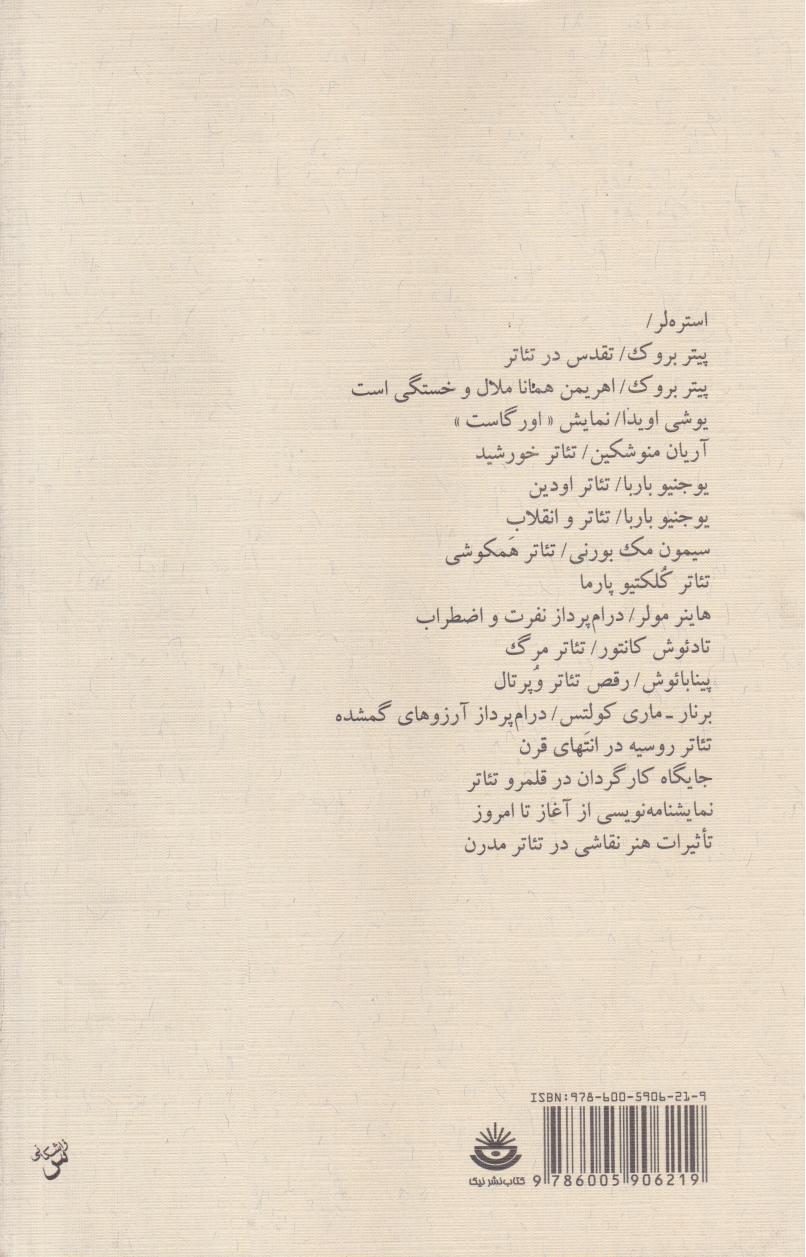 استره‌لر/
پیتر بروک/ تقدس در تئاتر
پیتر بروک/ اهریمن همانا ملال و خستگی است
یوشی اویدا/ نمایش «اورگاست»
آریان منوشکین/ تئاتر خورشید
یوجنیو باربا/ تئاتر اودین
یوجنیو باربا/ تئاتر و انقلاب
سیمون مک بورنی/ تئاتر هَمکوشی
تئاتر کُلکتیو پارما
هاینر مولر/ درام‌پرداز نفرت و اضطراب
تادئوش کانتور/ تئاتر مرگ
پینابائوش/ رقص تئاتر وُپرتال
برنار ـ ماری کولتس/ درام‌پرداز آرزوهای گمشده
تئاتر روسیه در انتَهای قرن
جایگاه کارگردان در قلمرو تئاتر
نمایشنامه‌نویسی از آغاز تا امروز
تأثیرات هنر نقاشی در تئاتر مدرن
ISBN:978-600-5906-21-9
9 786005 906219
کتاب‌نشر نیکا